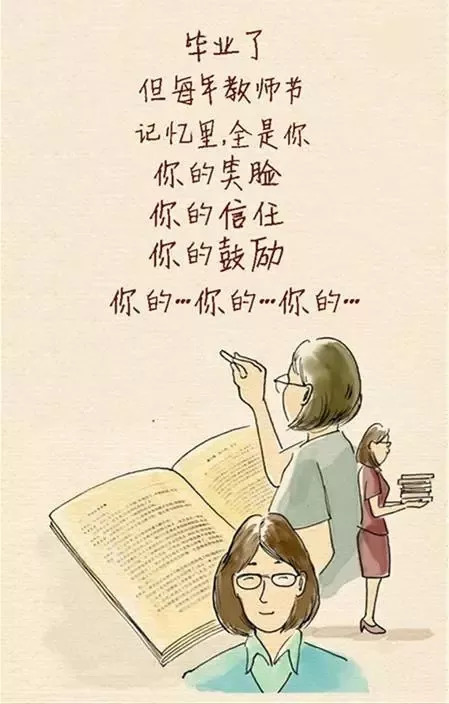 毕业了
但每年教师节
记忆里,全是你
你的笑脸
你的信任
你的鼓励
你的…你的…你的…